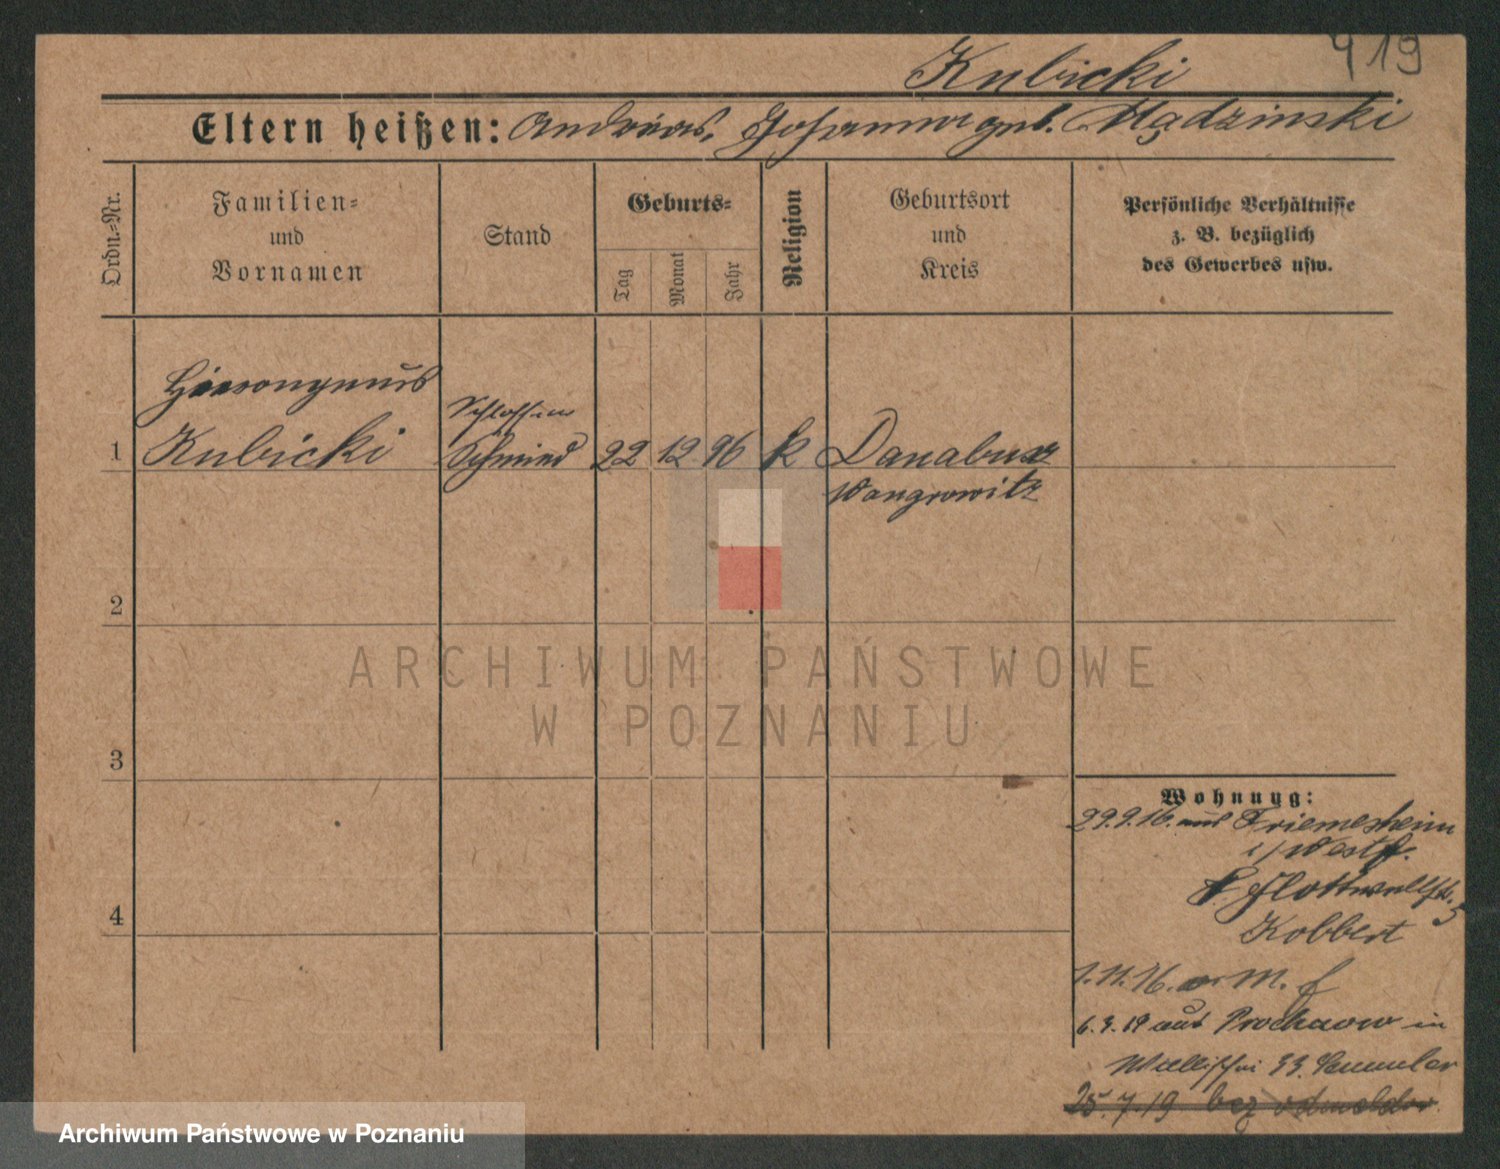 419
Kubicki
Eltern heißen: Andreas, Johanna geb. Mądzinski
Ordn.-Nr.
Familien-
und
Vornamen
Stand
Geburts-
Tag
Monat
Jahr
Religion
Geburtsort
und
Kreis
Persönliche Verhältnisse
z. B. bezüglich
des Gewerbes usw.
Hieronymus
1 Kubicki Schmied 22 12 96 k Danaburz
Wongrowitz
2
3
4
Wohnung:
29.9.16. aus Friemersheim
i/Westf.
Flottwellstr. 5
Kobbert
1.11.16. M.
6.3.19 aus Prochnow in
33.
25.7.19 bez odmeldow
ARCHIWUM PAŃSTWOWE
W POZNANIU
Archiwum Państwowe w Poznaniu